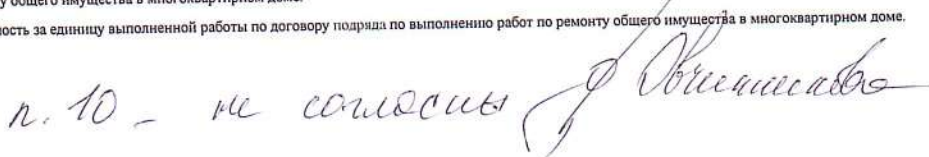 у общего имущества в многоквартирном доме.
ость за единицу выполненной работы по договору подряда по выполнению работ по ремонту общего имущества в многоквартирном доме.
п. 10 - не согласны Овчинникова